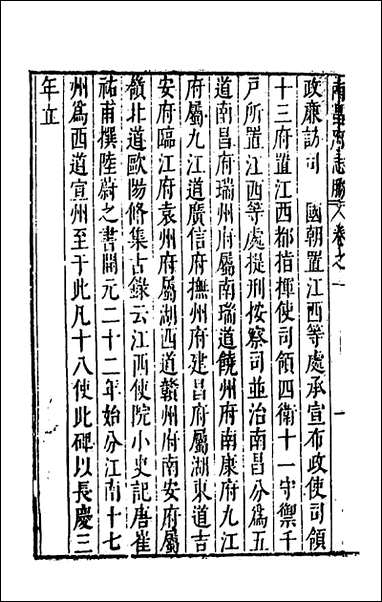 南昌府志勝 卷之一 一
政廉訪司　國朝置江西等處承宣布政使司領
十三府置江西都指揮使司領四衛十一守禦千
戶所置江西等處提刑按察司並治南昌分爲五
道南昌府瑞州府屬南瑞道饒州府南康府九江
府屬九江道廣信府撫州府建昌府屬湖東道吉
安府臨江府袁州府屬湖西道贛州府南安府屬
嶺北道歐陽修集古錄云江西使院小史記唐崔
祐甫撰陸蔚之書開元二十二年始分江南十七
州爲西道宣州至于此凡十八使此碑以長慶三
年立